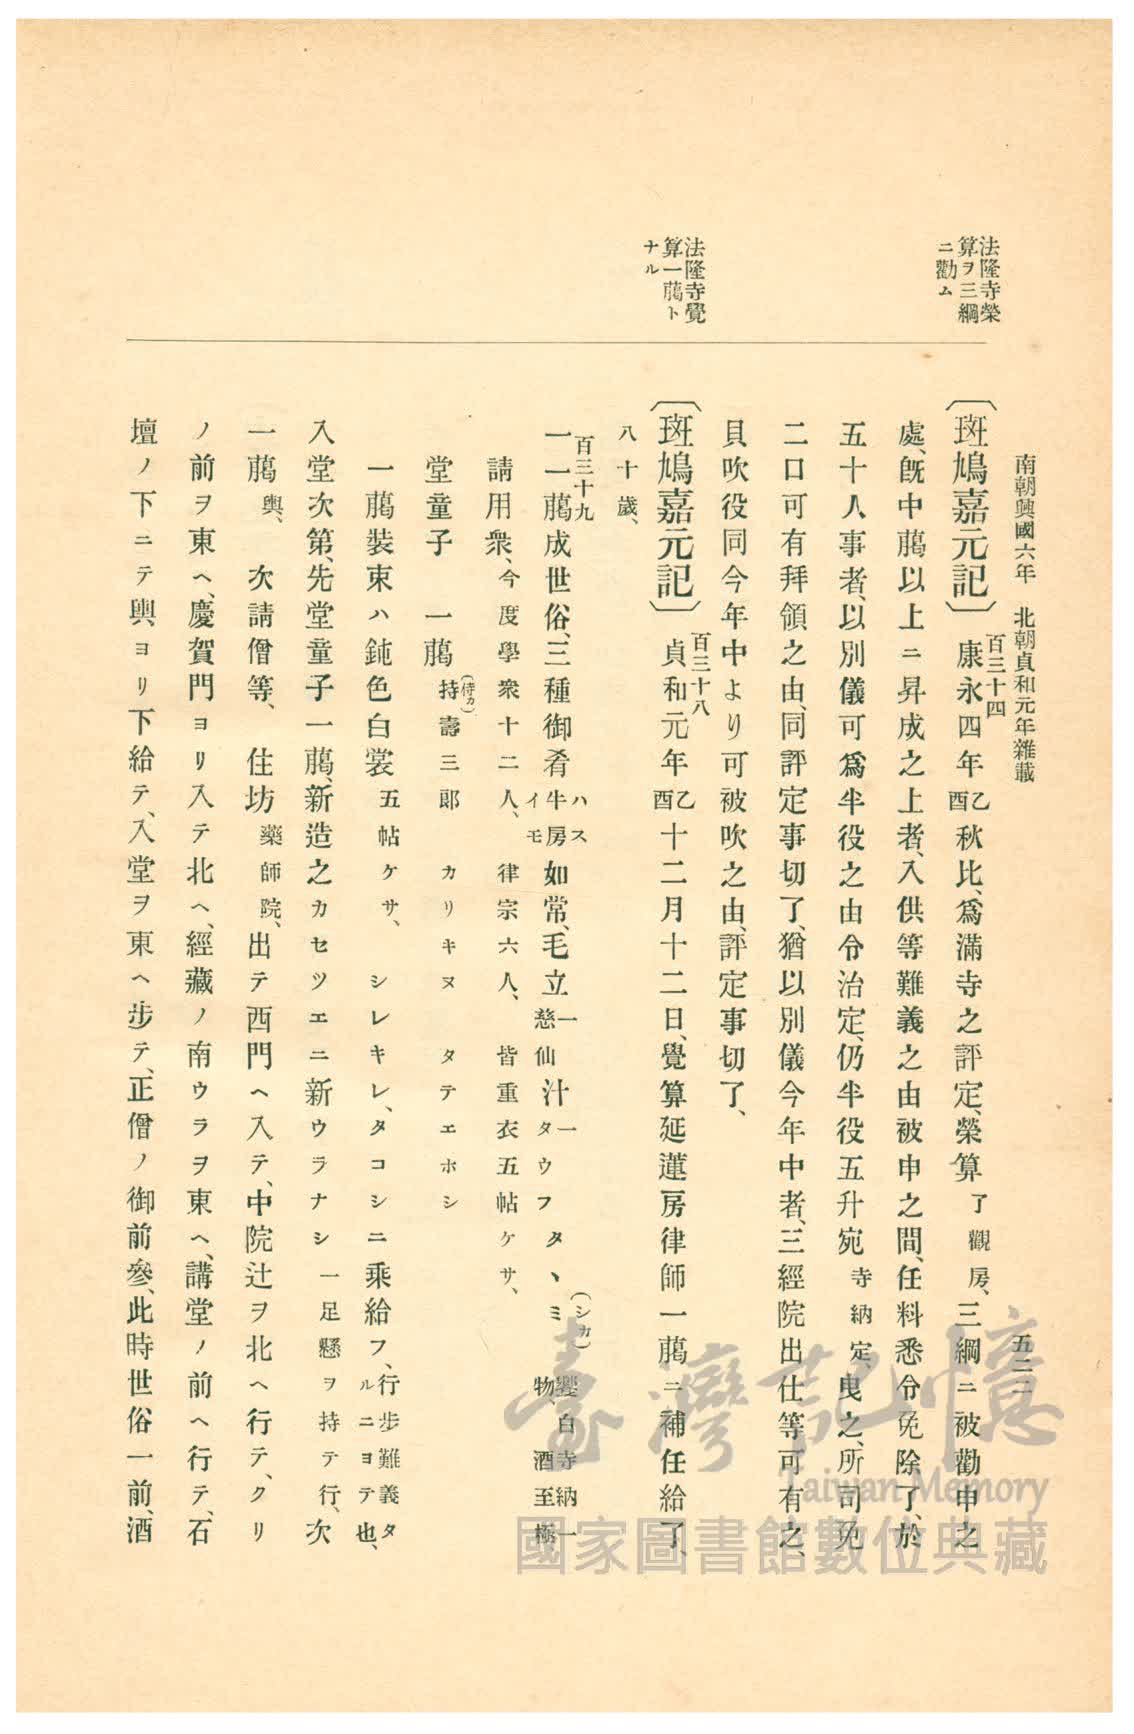 南朝興國六年　北朝貞和元年雜載
五二二
法隆寺榮
算ヲ三綱
ニ勸ム
法隆寺覺
算一﨟ト
ナル
〔斑鳩嘉元記〕百三十四 康永四年乙酉秋比、爲滿寺之評定、榮算了觀房、三綱ニ被勸申之
處、旣中﨟以上ニ昇成之上者、入供等難義之由被申之間、任料悉令免除了、於
五十人事者、以別儀可爲半役之由令治定、仍半役五升宛寺納定、曳之、所司免
二口可有拜領之由、同評定事切了、猶以別儀今年中者、三經院出仕等可有之、
貝吹役同今年中より可被吹之由、評定事切了、
〔斑鳩嘉元記〕百三十八 貞和元年乙酉十二月十二日、覺算延蓮房律師一﨟ニ補任給了、
八十歲、
百三十九
一一﨟成世俗、三種御肴ハス牛房イモ如常、毛立一慈仙汁一タウフタヽミ(シカ)物、寺納一酒至極
請用衆、今度學衆十二人、律宗六人、皆重衣五帖ケサ、
堂童子　一﨟持(侍カ)壽三郎　カリキヌ　タテエホシ
一﨟裝束ハ鈍色白裳五帖ケサ、シレキレ、タコシニ乘給フ、行步難義タルニヨテ也、
入堂次第、先堂童子一﨟、新造之カセツエニ新ウラナシ一足懸ヲ持テ行、次
一﨟輿、　次請僧等、　住坊藥師院、出テ西門ヘ入テ、中院辻ヲ北ヘ行テ、クリ
ノ前ヲ東ヘ、慶賀門ヨリ入テ北ヘ、經藏ノ南ウラヲ東ヘ、講堂ノ前ヘ行テ、石
壇ノ下ニテ輿ヨリ下給テ、入堂ヲ東ヘ步テ、正僧ノ御前參、此時世俗一前、酒
臺灣記憶
Taiwan Memory
國家圖書館數位典藏